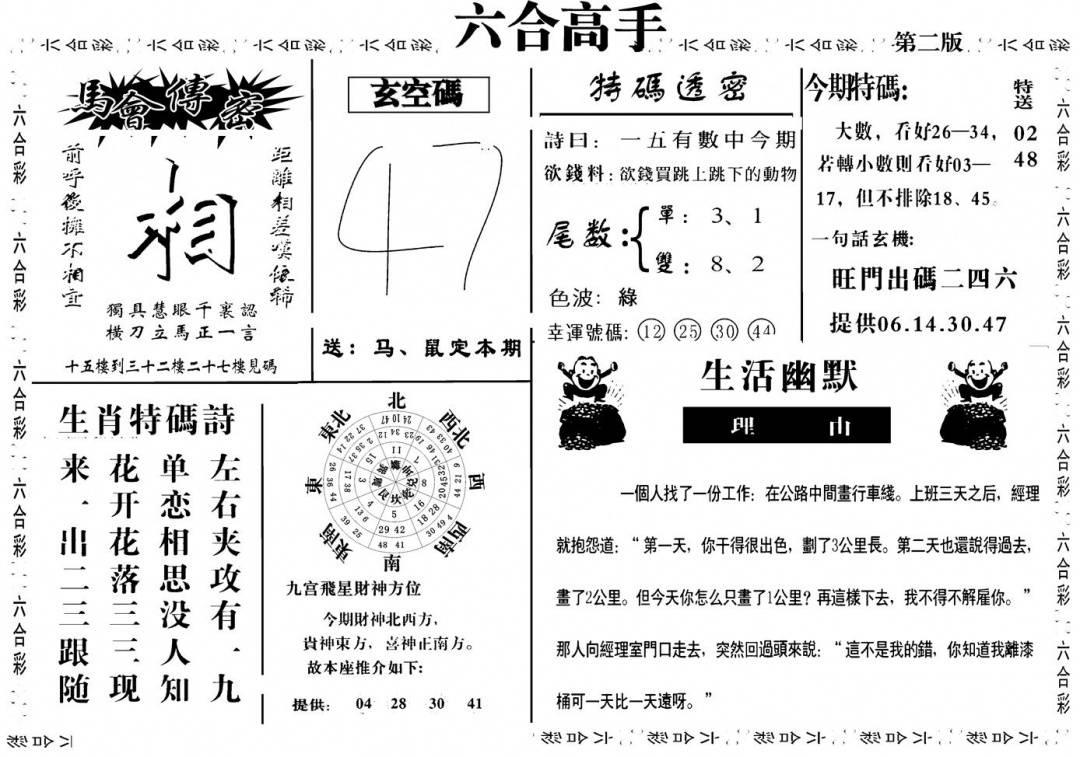 六合高手
第二版
馬會傳密
前呼後擁不相宜
距離相差嘆後歸
獨具慧眼千裏認
橫刀立馬正一言
十五樓到三十二樓二十七樓見碼
玄空碼
47
送：马、鼠定本期
特碼透密
詩曰：一五有數中今期
欲錢料：欲錢買跳上跳下的動物
尾数：
單：3、1
雙：8、2
色波：綠
幸運號碼：12 25 30 44
今期特碼：
特送
02
48
大數，看好26—34，
若轉小數則看好03—
17，但不排除18、45。
一句話玄機：
旺門出碼二四六
提供06.14.30.47
生肖特碼詩
左右夹攻有一九
单恋相思没人知
花开花落三三现
来一出二三跟随
北
西北
西
西南
南
東南
東
東北
九宮飛星財神方位
今期財神北西方，
貴神東方，喜神正南方。
故本座推介如下：
提供： 04 28 30 41
生活幽默
理由
一個人找了一份工作：在公路中間畫行車綫。上班三天之后，經理
就抱怨道：“第一天，你干得很出色，劃了3公里長。第二天也還說得過去，
畫了2公里。但今天你怎么只畫了1公里？再這樣下去，我不得不解雇你。”
那人向經理室門口走去，突然回過頭來說：“這不是我的錯，你知道我離漆
桶可一天比一天遠呀。”
六合彩 六合彩 六合彩 六合彩 六合彩 六合彩